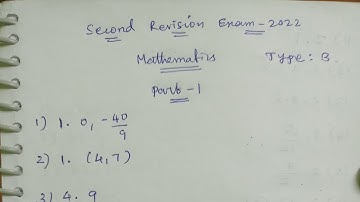 Second Revision Exam-2022
Mathematics Type: B.
Part-1
1) 1. 0, -40/9
2) 1. (4,7)
3) 4. 9